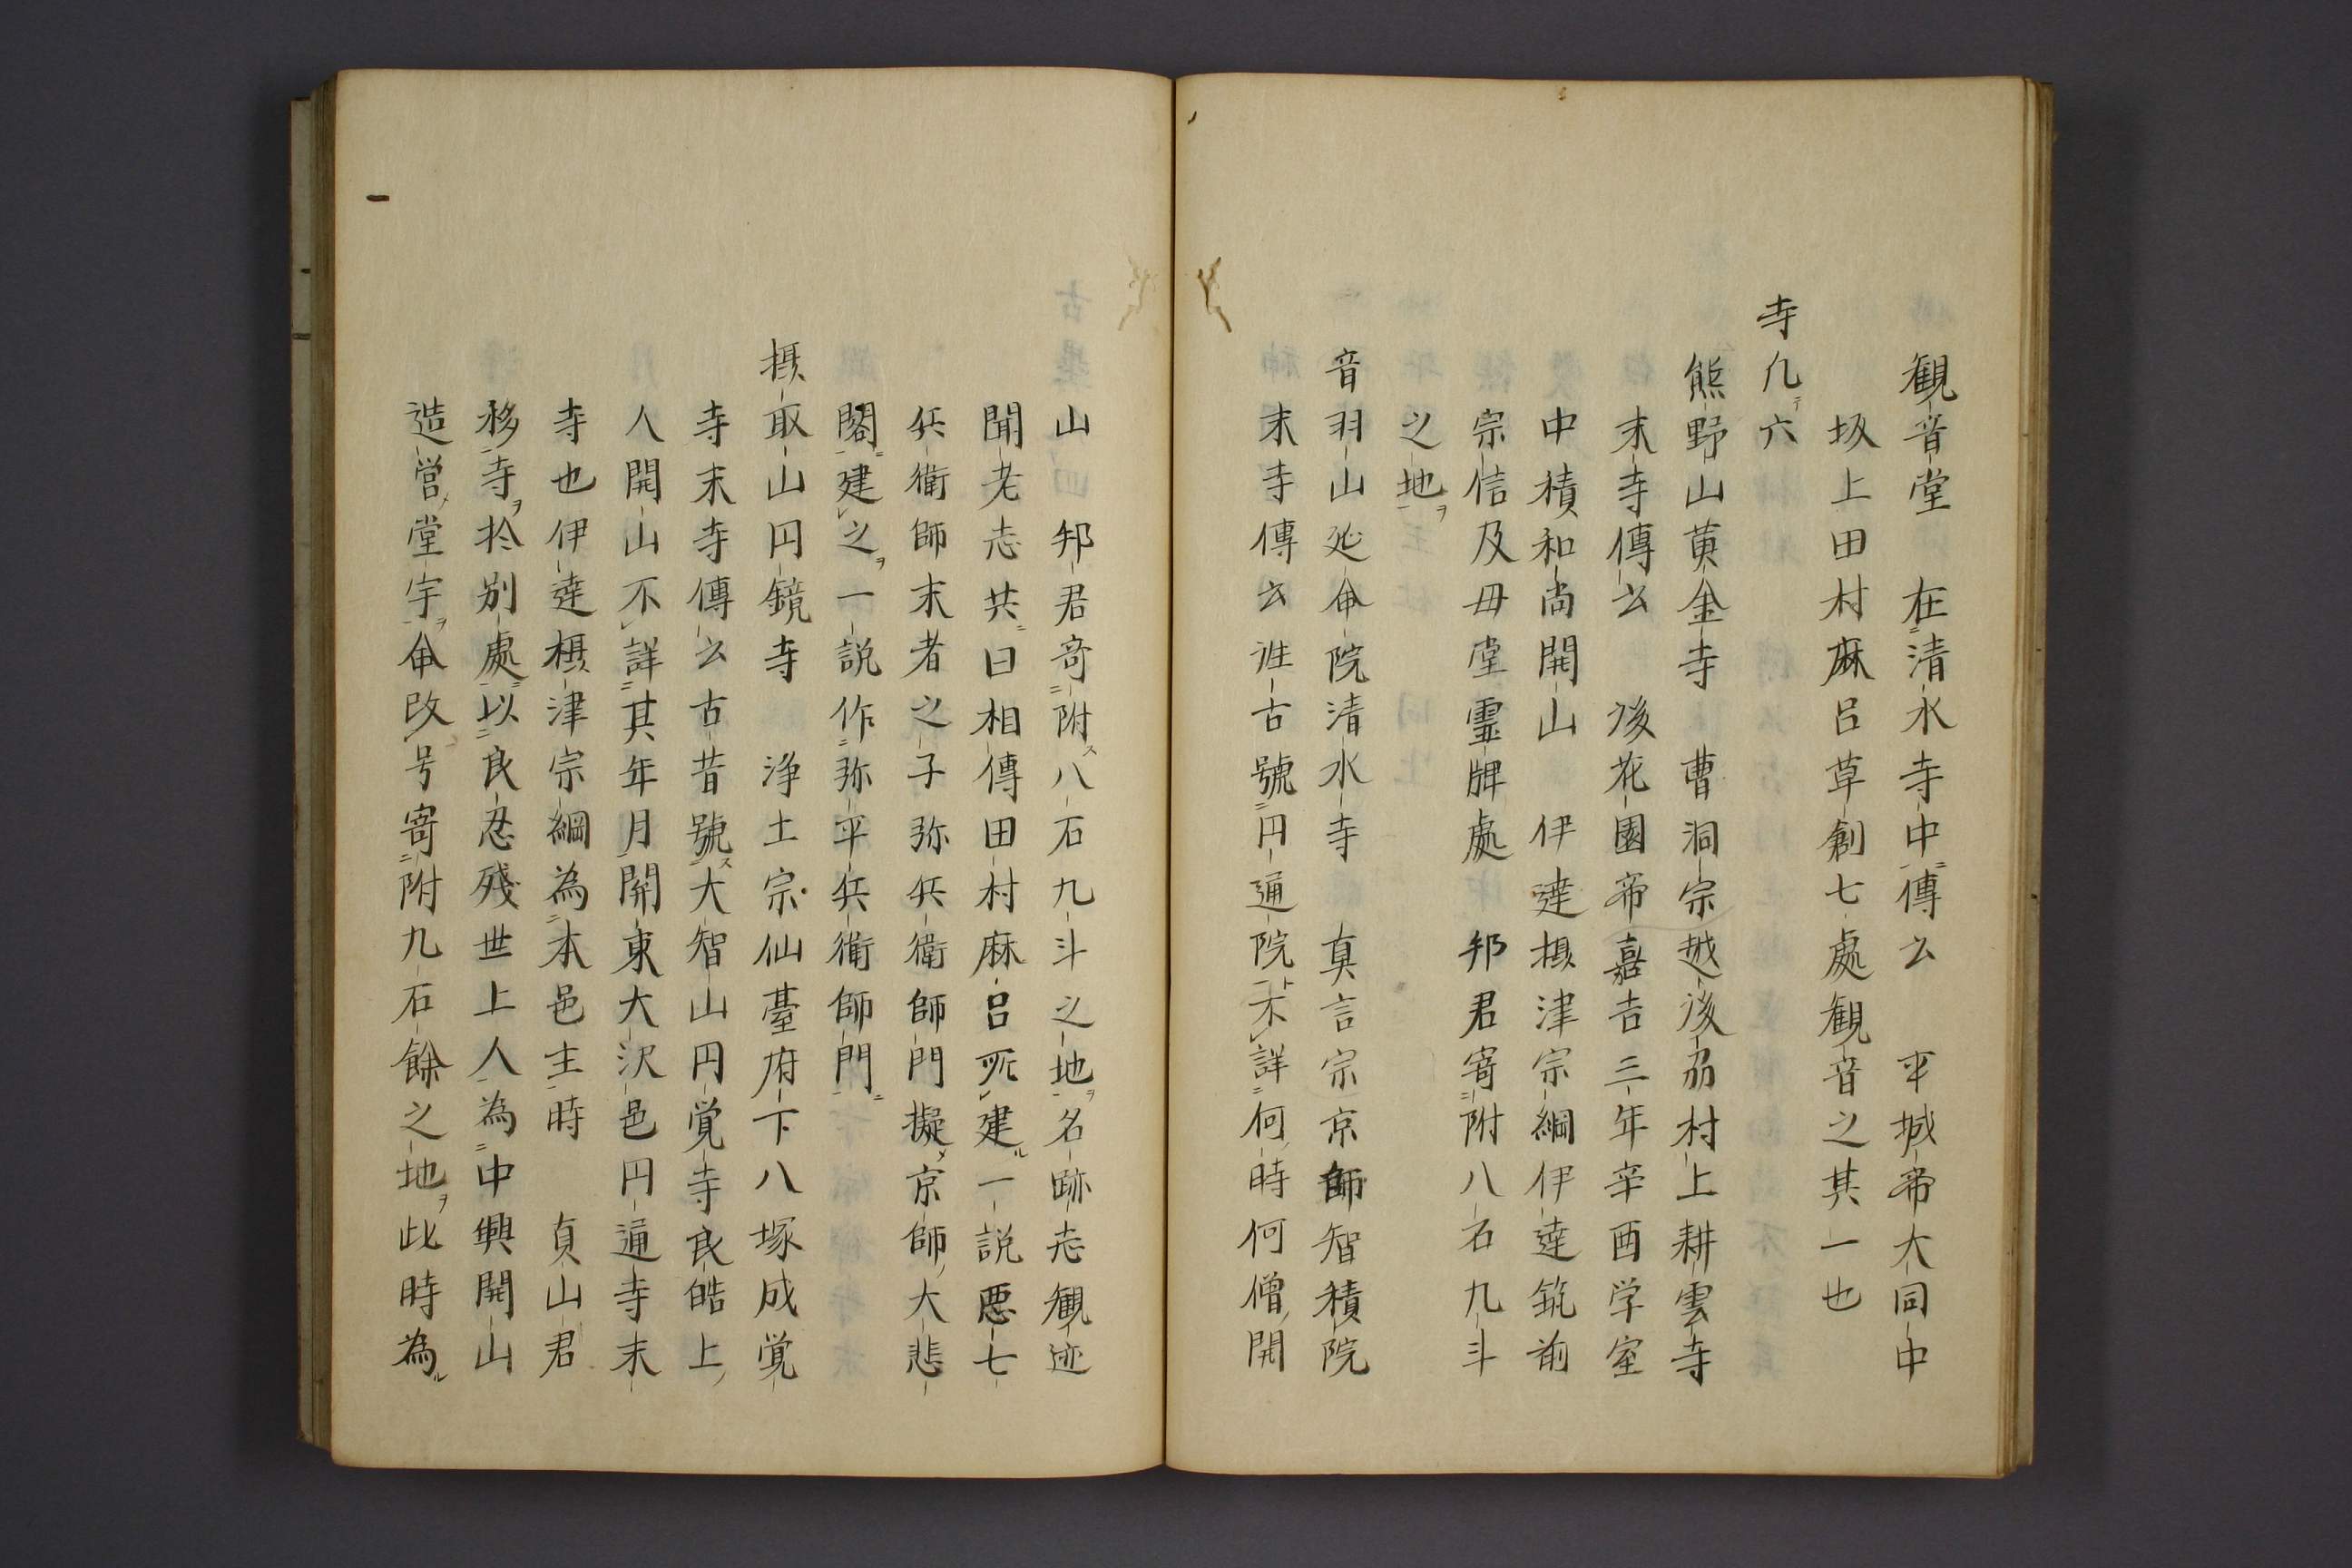 観音堂　在清水寺中傳云　平城帝大同中
坂上田村麻呂草創七處観音之其一也
寺凡六
熊野山黄金寺　曹洞宗越後刕村上耕雲寺
末寺傳云　後花園帝嘉吉三年辛酉学室
中積和尚開山　伊達摂津宗綱伊達筑前
宗信及毋堂霊牌處　邦君寄附八石九斗
之地
音羽山延命院清水寺　真言宗京師智積院
末寺傳云往古號円通院不詳何時何僧開
山　邦君寄附八石九斗之地名跡志観迹
聞老志共曰相傳田村麻呂所建一説悪七
兵衛師末者之子弥兵衛師門擬京師大悲
閣建之一説作弥平兵衛師門
摂取山円鏡寺　浄土宗仙臺府下八塚成覚
寺末寺傳云古昔號大智山円覚寺良皓上
人開山不詳其年月開東大沢邑円通寺末
寺也伊達摂津宗綱為本邑主時　貞山君
移寺於別處以良忍残世上人為中興開山
造営堂宇命改号寄附九石餘之地此時為